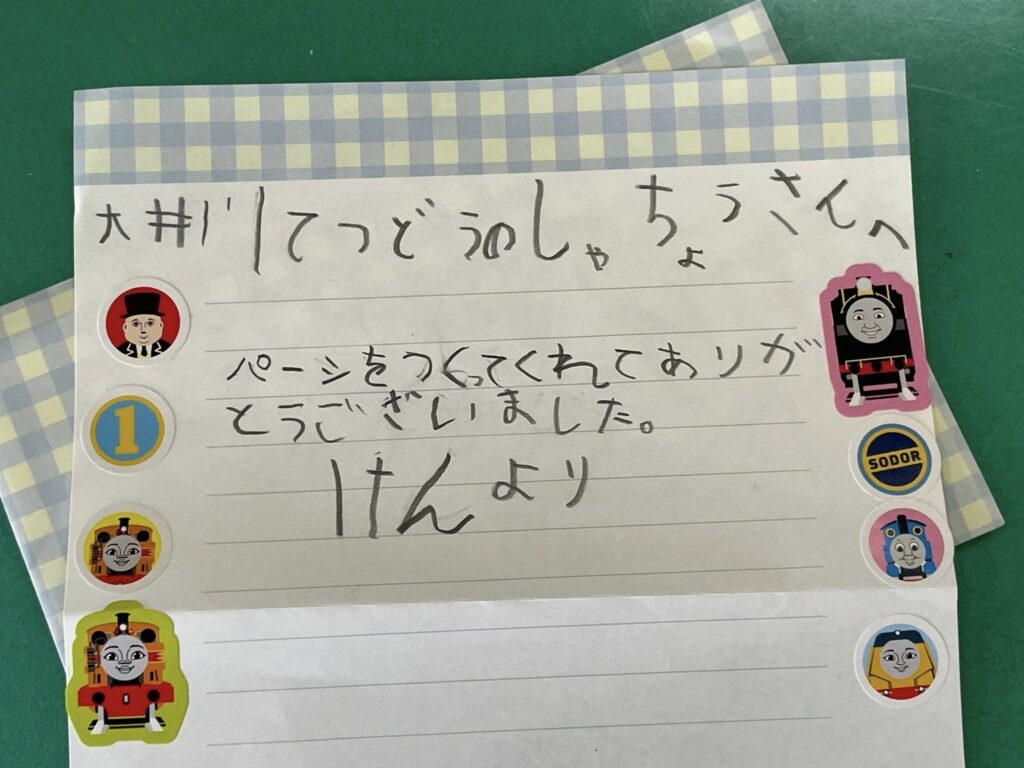 大井川てつどうのしゃちょうさんへ
パーシをつくってくれてありが
とうございました。
けんより
1
SODOR